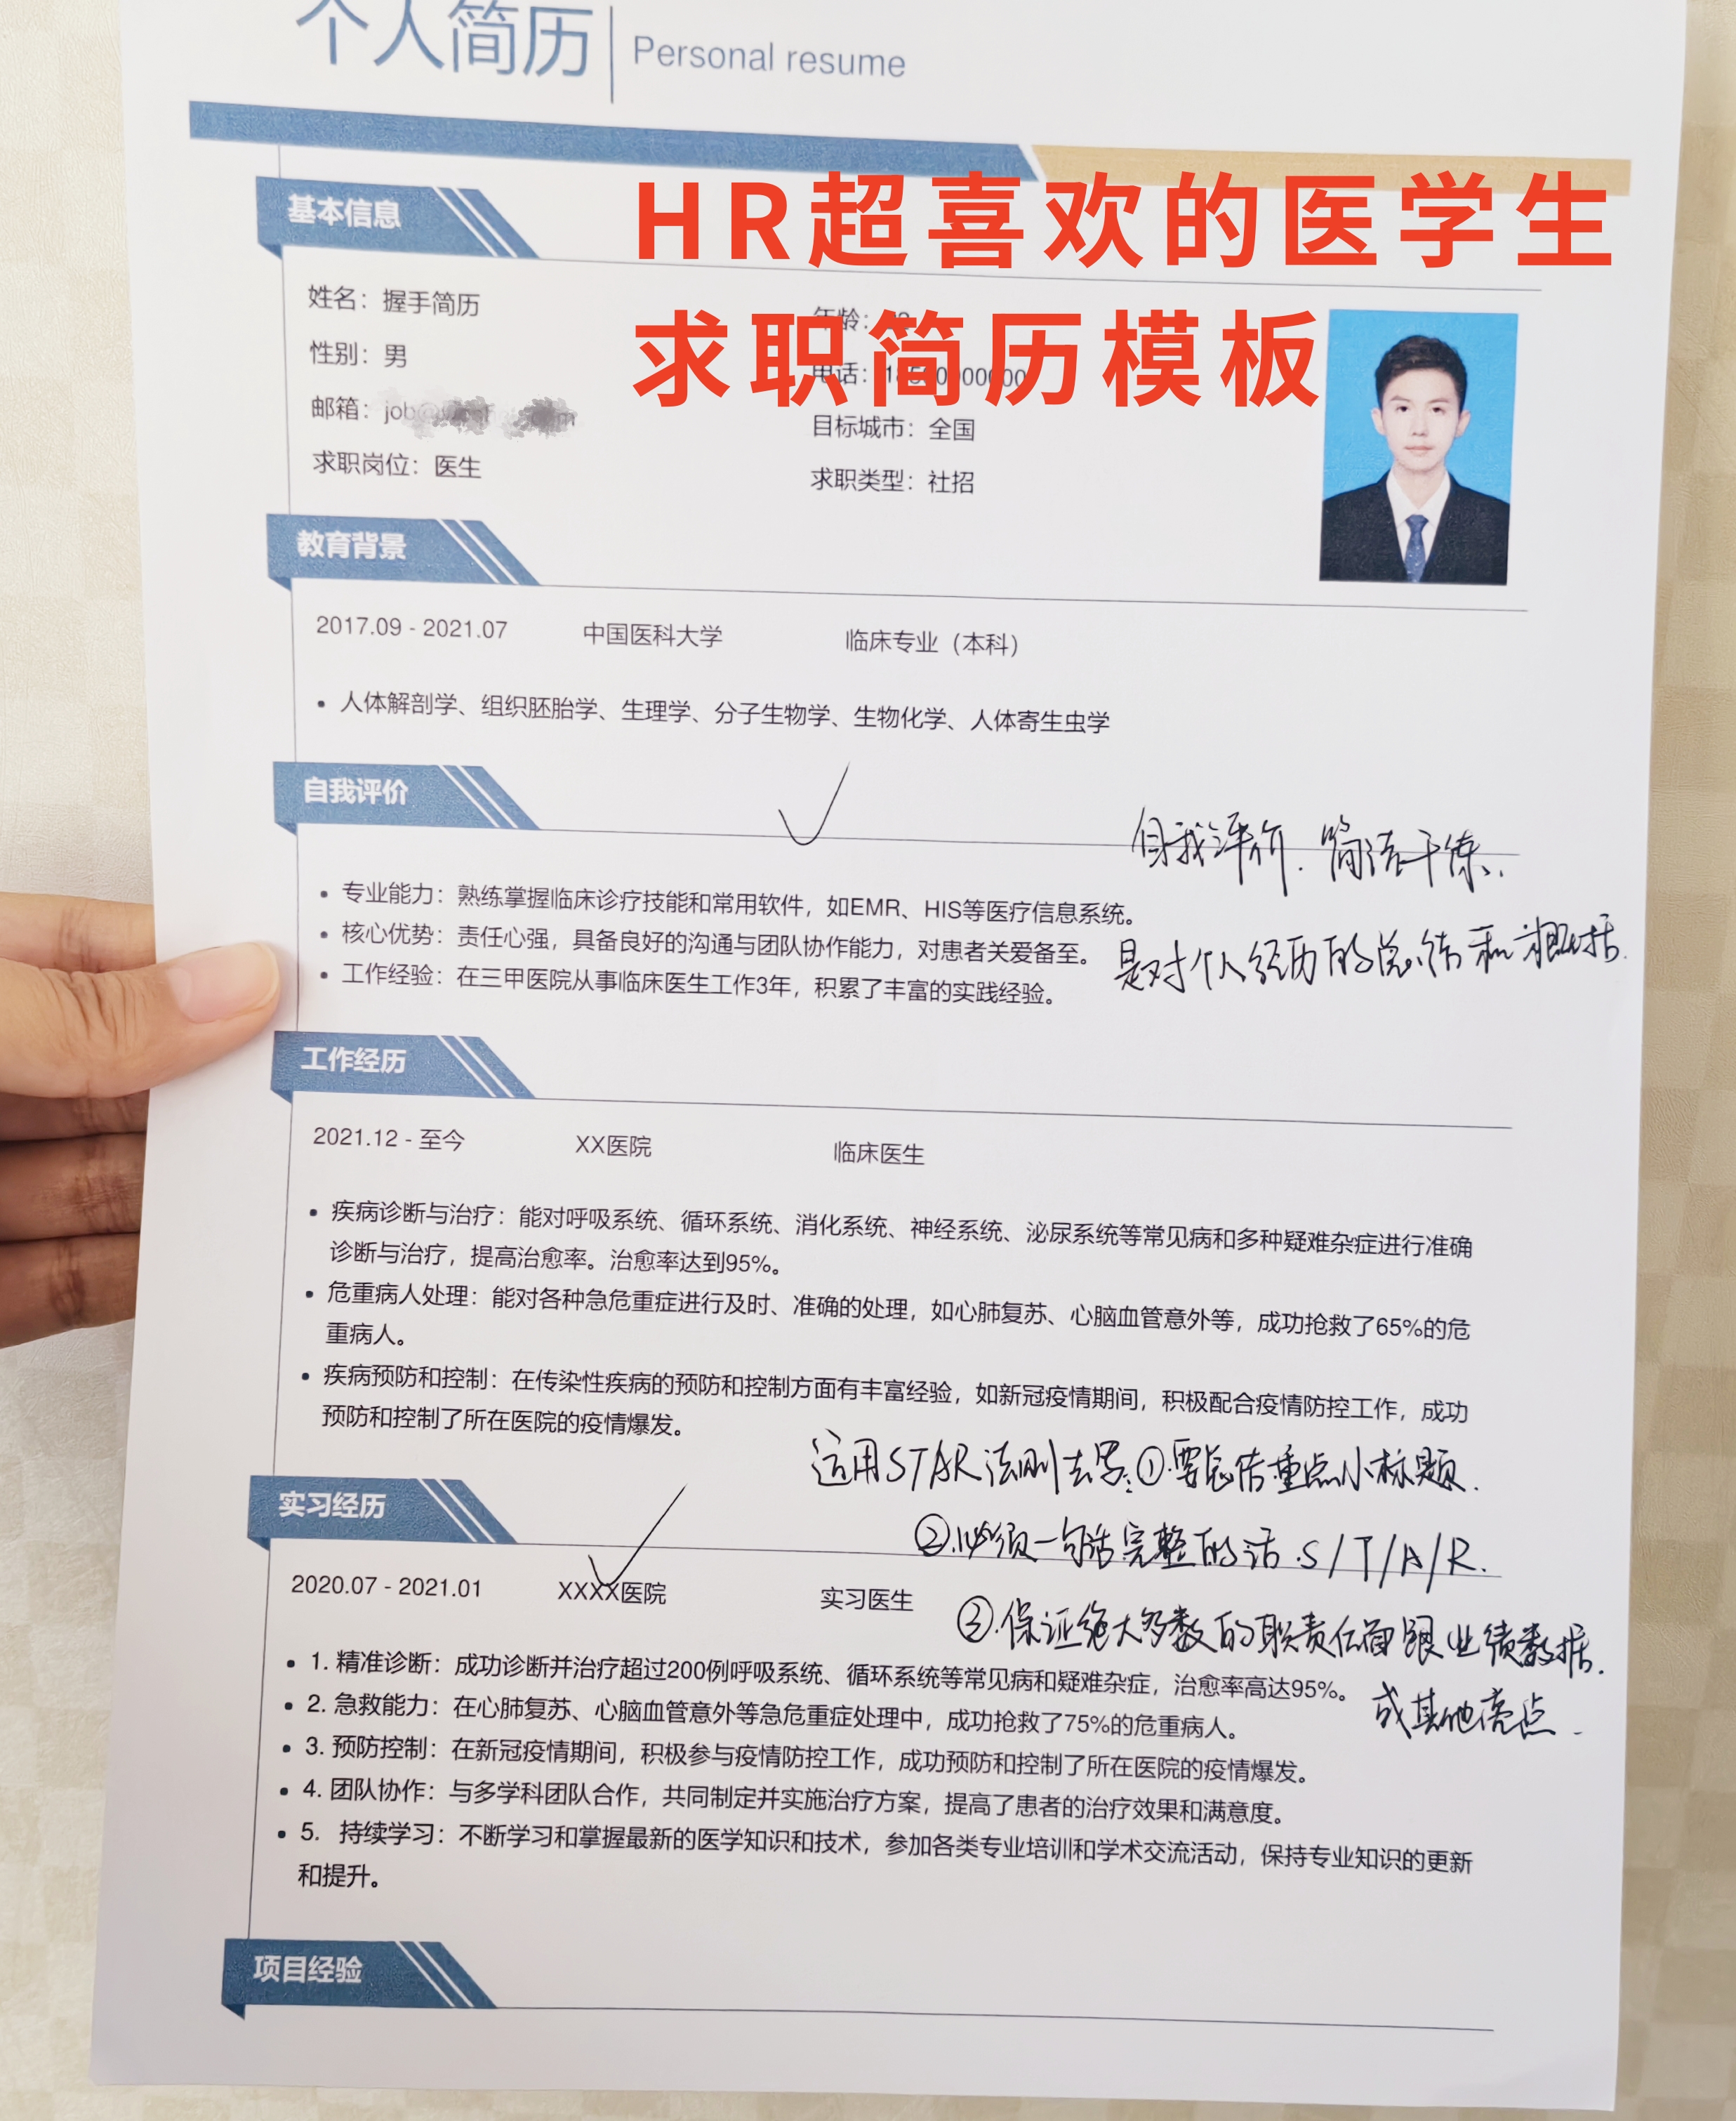 个人简历 Personal resume
HR超喜欢的医学生
求职简历模板
基本信息
姓名：握手简历
年龄：
性别：男
电话：
邮箱：job@
目标城市：全国
求职岗位：医生
求职类型：社招
教育背景
2017.09 - 2021.07 中国医科大学 临床专业（本科）
• 人体解剖学、组织胚胎学、生理学、分子生物学、生物化学、人体寄生虫学
自我评价
自我评价.简洁干练.
• 专业能力：熟练掌握临床诊疗技能和常用软件，如EMR、HIS等医疗信息系统。
• 核心优势：责任心强，具备良好的沟通与团队协作能力，对患者关爱备至。
是对个人经历的总结和概括.
• 工作经验：在三甲医院从事临床医生工作3年，积累了丰富的实践经验。
工作经历
2021.12 - 至今 XX医院 临床医生
• 疾病诊断与治疗：能对呼吸系统、循环系统、消化系统、神经系统、泌尿系统等常见病和多种疑难杂症进行准确
诊断与治疗，提高治愈率。治愈率达到95%。
• 危重病人处理：能对各种急危重症进行及时、准确的处理，如心肺复苏、心脑血管意外等，成功抢救了65%的危
重病人。
• 疾病预防和控制：在传染性疾病的预防和控制方面有丰富经验，如新冠疫情期间，积极配合疫情防控工作，成功
预防和控制了所在医院的疫情爆发。
运用STAR法则去写:①要总结重点小标题.
实习经历
②.必须一句话完整的话.S/T/A/R.
2020.07 - 2021.01 XXXX医院 实习医生
③.保证绝大多数的职责后面跟业绩数据.
• 1. 精准诊断：成功诊断并治疗超过200例呼吸系统、循环系统等常见病和疑难杂症，治愈率高达95%。
或其他亮点.
• 2. 急救能力：在心肺复苏、心脑血管意外等急危重症处理中，成功抢救了75%的危重病人。
• 3. 预防控制：在新冠疫情期间，积极参与疫情防控工作，成功预防和控制了所在医院的疫情爆发。
• 4. 团队协作：与多学科团队合作，共同制定并实施治疗方案，提高了患者的治疗效果和满意度。
• 5. 持续学习：不断学习和掌握最新的医学知识和技术，参加各类专业培训和学术交流活动，保持专业知识的更新
和提升。
项目经验